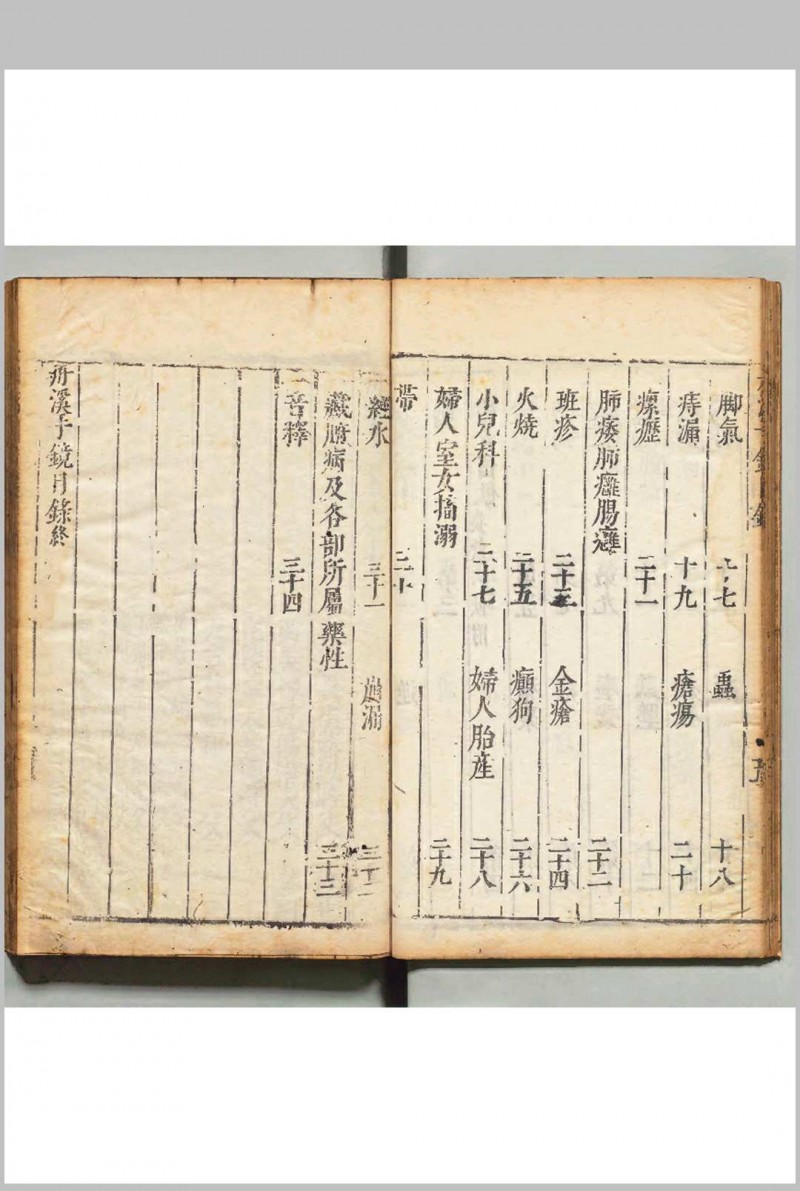 脚氣 十七 蟲 十八
痔漏 十九 瘡瘍 二十
瘰癧 二十一
肺痿肺癰腸癰 二十二
班疹 二十三 金瘡 二十四
火燒 二十五 癲狗 二十六
小兒科 二十七 婦人胎産 二十八
婦人室女搐溺 二十九
帶 三十
經水 三十一 崩漏 三十二
藏腑病及各部所屬藥性 三十三
音釋 三十四
丹溪手鏡目錄終